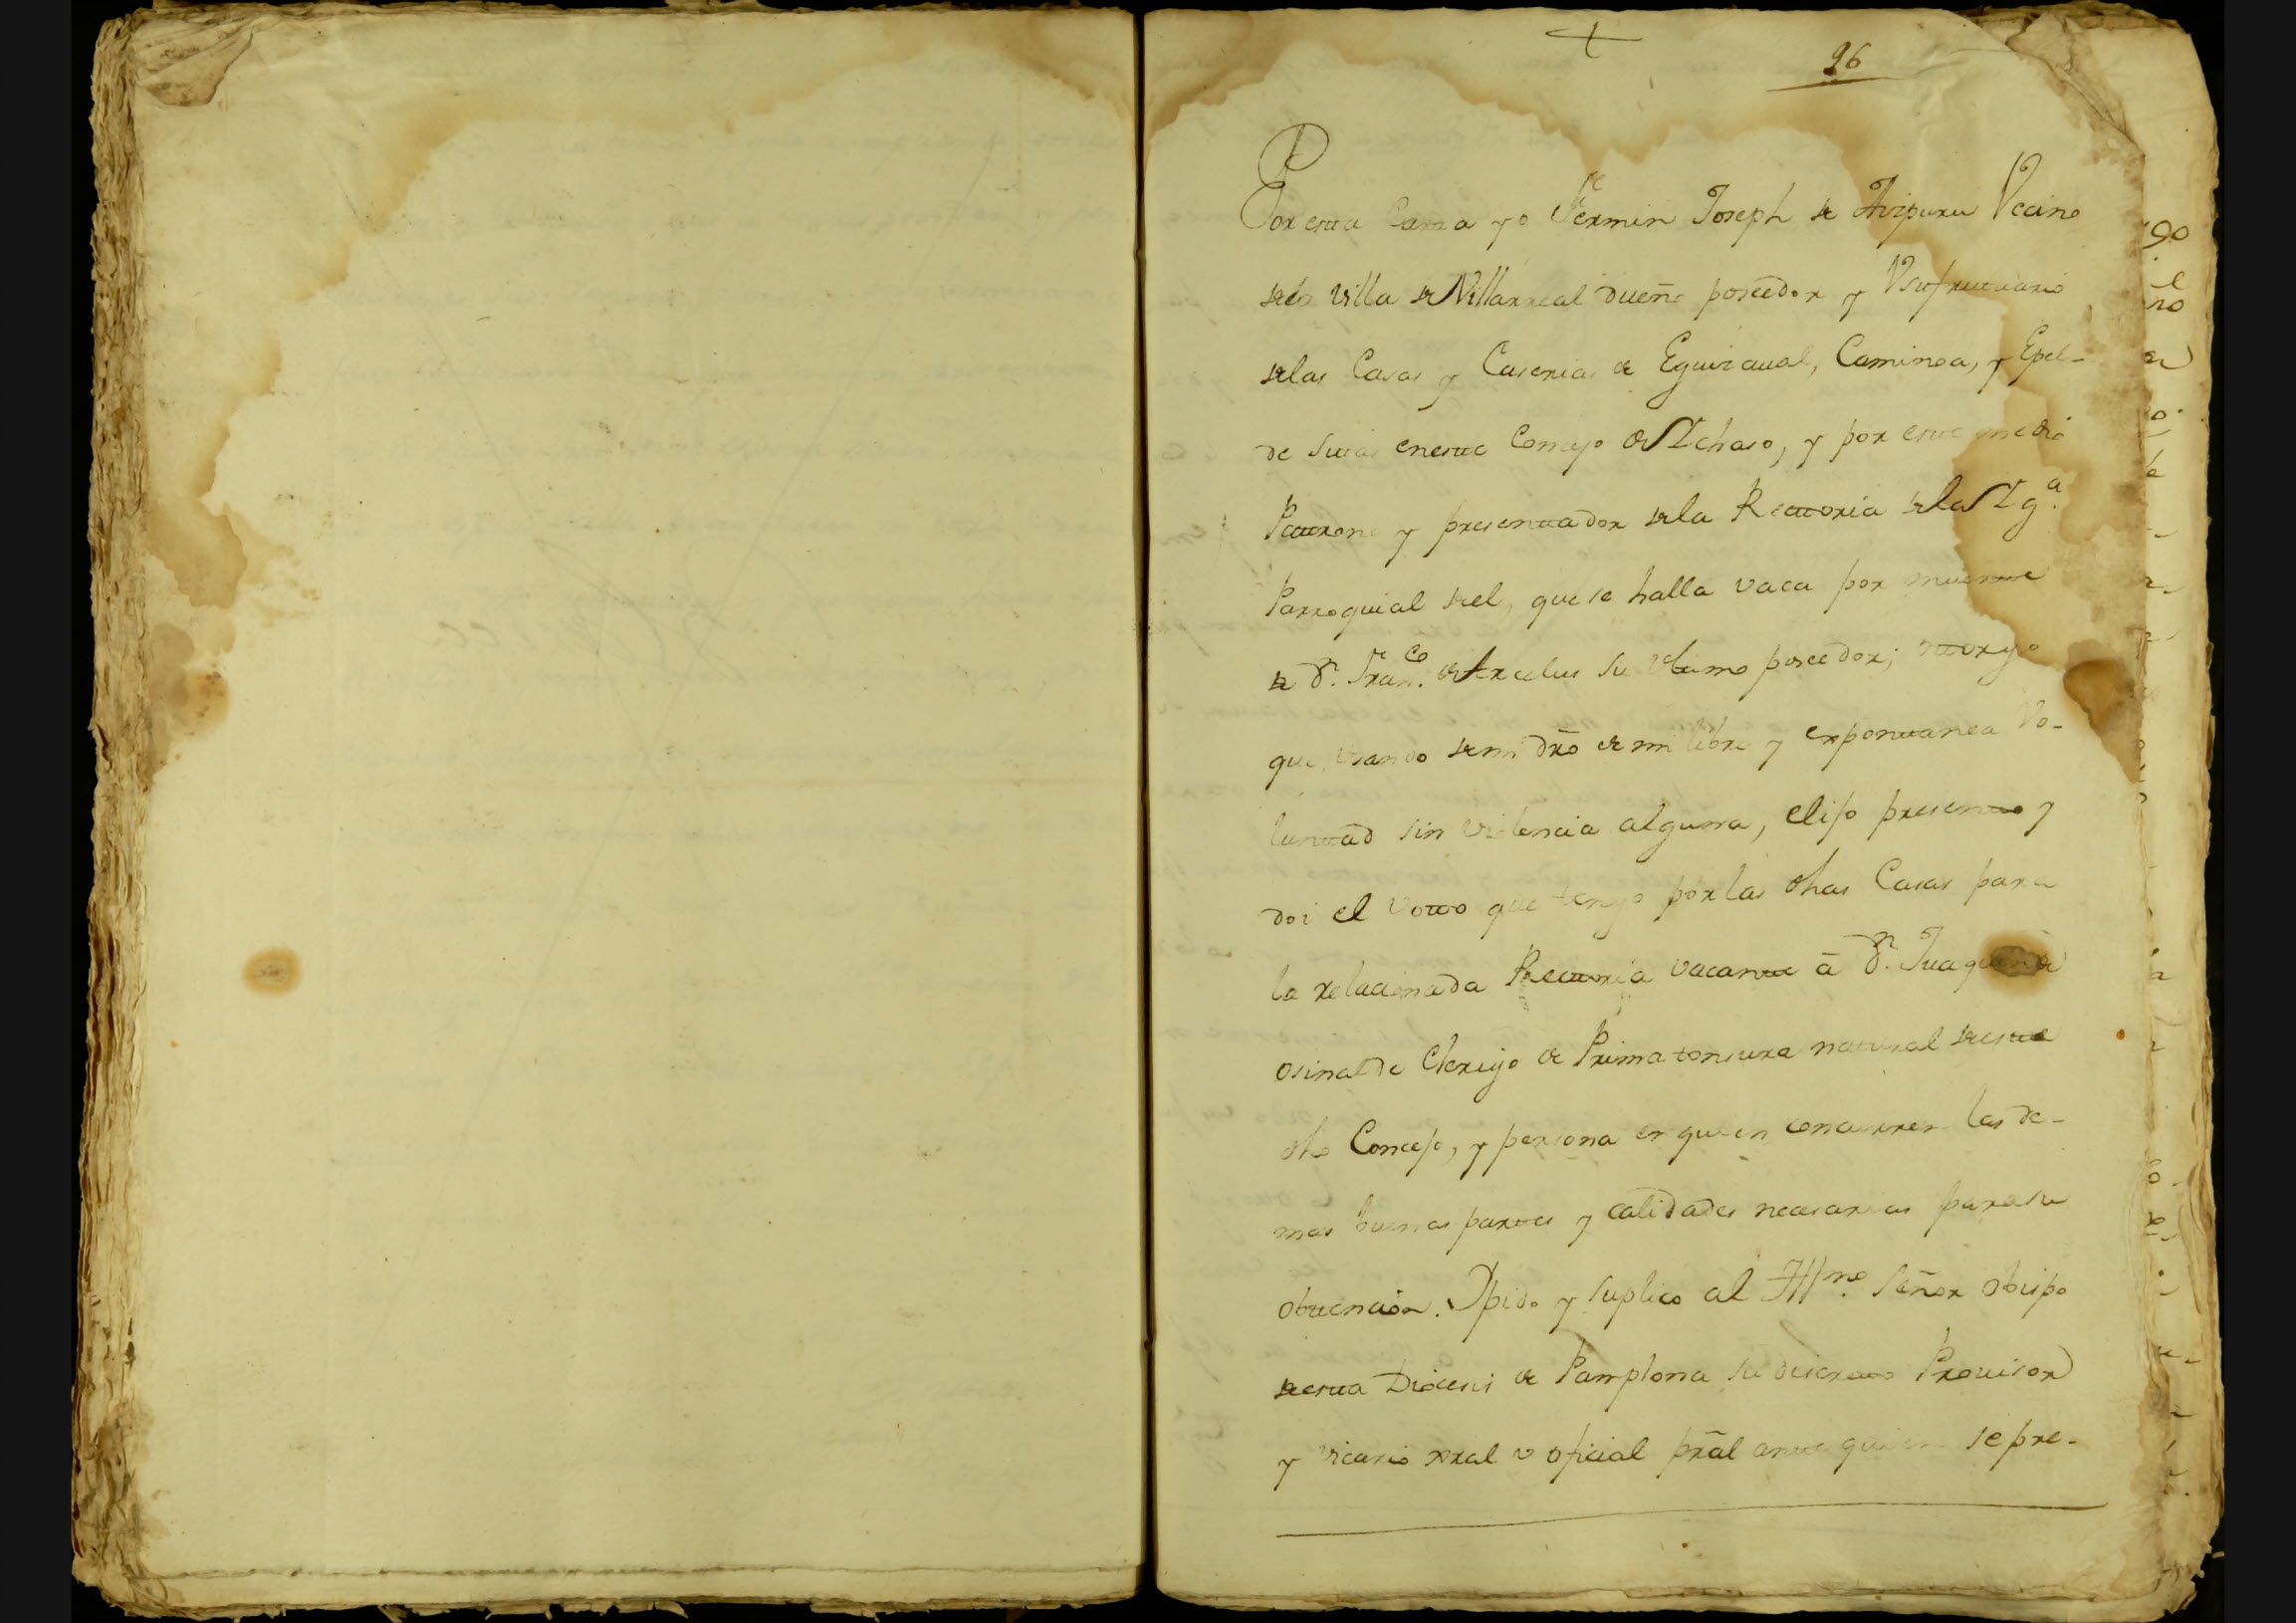 +
96
Por esta Carta yo Fermin Joseph de Aizpuru Vecino
dela villa de Villarreal dueño poseedor y Vsufructuario
delas Casas y Caserias de Eguizaual, Caminoa, y Epel-
de sitas eneste Concejo de Ichaso, y por este medio
Patrono y presentador dela Rectoria dela Ig.ª
Parroquial del, que se halla vaca por muerte
de Dn. Fran.co de Arcelus su vltimo poseedor; otorgo
que vsando de mi dr̃o de mi libre y expontanea Vo-
luntad sin violencia alguna, elijo presento y
doi el voto que tengo por las dhas Casas para
la relacionada Rectoria vacante â Dn. Juaquin de
Osinalde Clerigo de Prima tonsura natural de este
dho Concejo, y persona en quien concurren las de-
mas buenas partes y calidades necesarias para su
obtencion. Y pido y suplico al Illmo. Señor obispo
de esta Diocesis de Pamplona su discreto Prouisor
y vicario gñral v oficial pr̃al ante quien se pre-